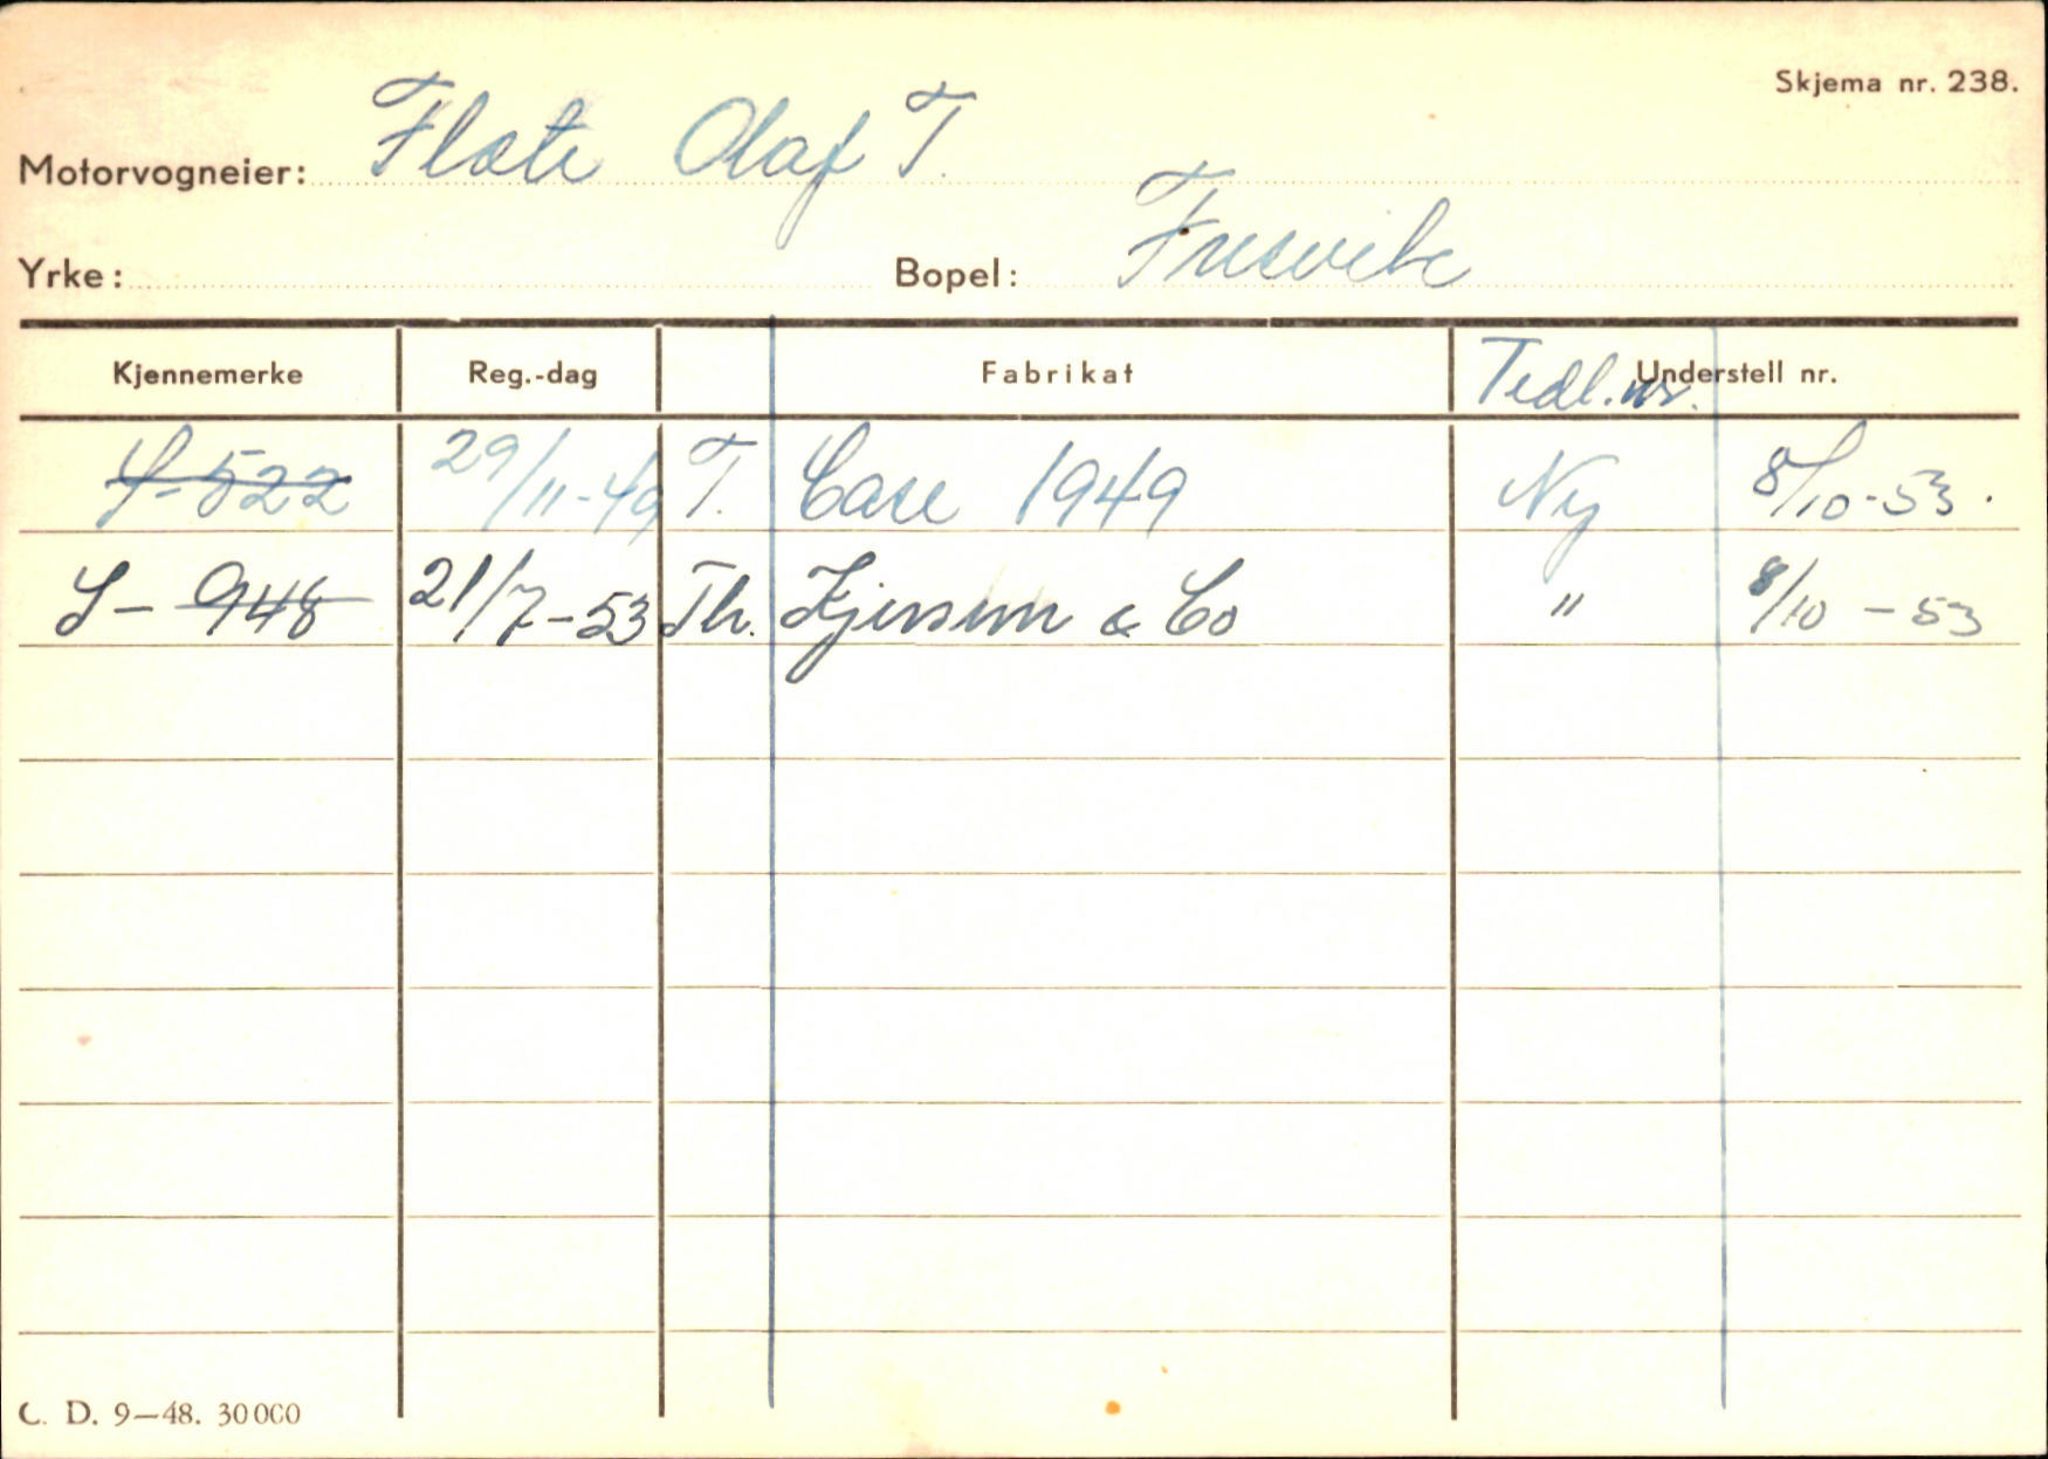 Skjema nr. 238.
Motorvogneier: Fløte Olaf T.
Yrke: Bopel: Fresvik
Kjennemerke Reg.-dag Fabrikat Tedl.nr. Understell nr.
S-522 29/11-49 T. Case 1949 Ny 8/10-53.
S-948 21/7-53 Th. & Co " 8/10-53
C. D. 9—48. 30000